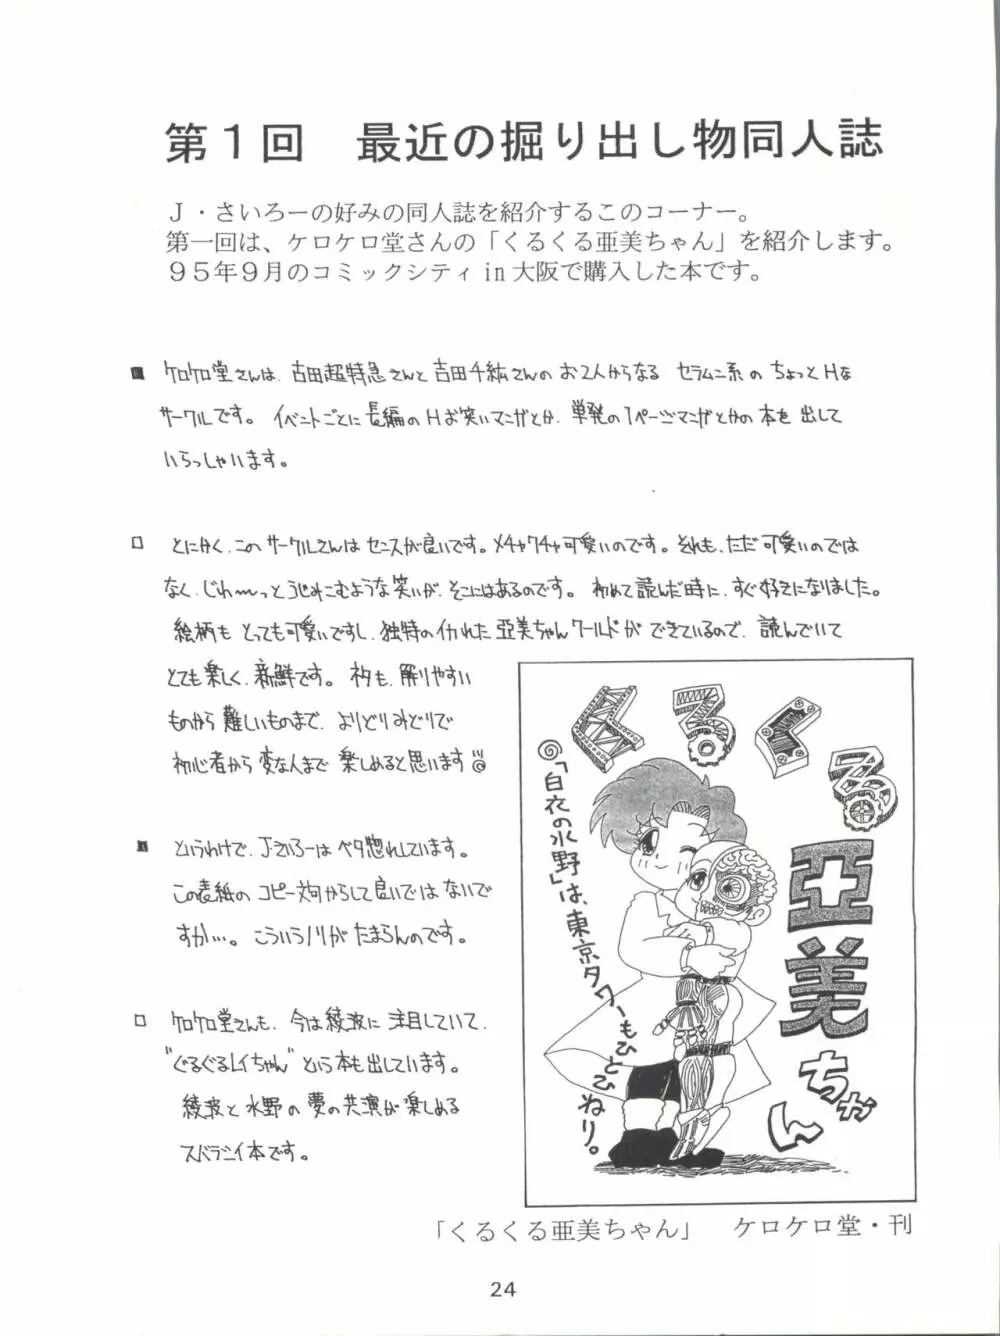 第１回　最近の掘り出し物同人誌
Ｊ・さいろーの好みの同人誌を紹介するこのコーナー。
第一回は、ケロケロ堂さんの「くるくる亜美ちゃん」を紹介します。
９５年９月のコミックシティ in 大阪で購入した本です。
■ ケロケロ堂さんは、古田超特急さんと吉田千紘さんのお2人からなる セラムン系のちょっとHな
サークルです。イベントごとに長編のHお笑いマンガとか、単発の1ページマンガとかの本を出して
いらっしゃいます。
□ とにかく、このサークルさんはセンスが良いです。メチャクチャ可愛いのです。それも、ただ可愛いのでは
なく、じわ〜っとうじゅるこむような笑いが、そこにはあるのです。初めて読んだ時に、すぐ好きになりました。
絵柄もとっても可愛いですし、独特のイカれた亜美ちゃんワールドができているので、読んでいて
とても楽しく、新鮮です。ネタも、解りやすい
ものから難しいものまで、よりどりみどりで
初心者から変な人まで楽しめると思います
■ というわけで、J・さいろーはベタ惚れしています。
この表紙のコピー文句からして良いではないで
すか…。こういうノリがたまらんのです。
□ ケロケロ堂さんも、今は綾波に注目していて、
"ぐるぐるレイちゃん"という本も出しています。
綾波と水野の夢の共演が楽しめる
スバラシイ本です。
くるくる
亞美ちゃん
「白衣の水野」は、東京タワーもひとひねり。
「くるくる亜美ちゃん」　ケロケロ堂・刊
24